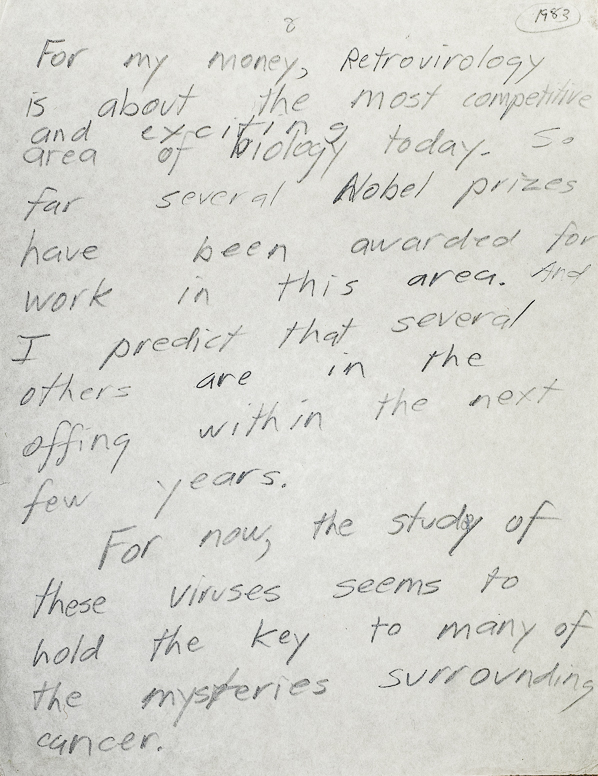 8
1983
For my money, Retrovirology
is about the most competitive
and exciting
area of biology today. So
far several Nobel prizes
have been awarded for
work in this area. And
I predict that several
others are in the
offing within the next
few years.
For now, the study of
these viruses seems to
hold the key to many of
the mysteries surrounding
cancer.